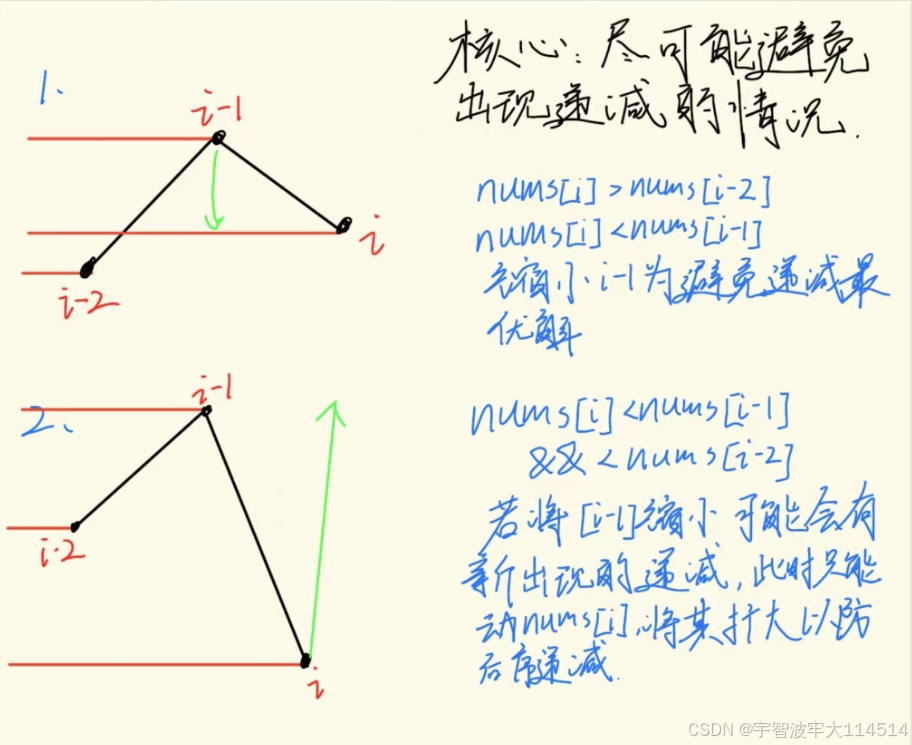 核心：尽可能避免
出现递减的情况.
1.
i-1
i
i-2
nums[i]>nums[i-2]
nums[i]<nums[i-1]
缩小i-1为避免递减最
优解
2、
i-1
i-2
i
nums[i]<nums[i-1]
&&<nums[i-2]
若将[i-1]缩小可能会有
新出现的递减，此时只能
动nums[i],将其扩大以防
后序递减.
CSDN @宇智波牢大114514